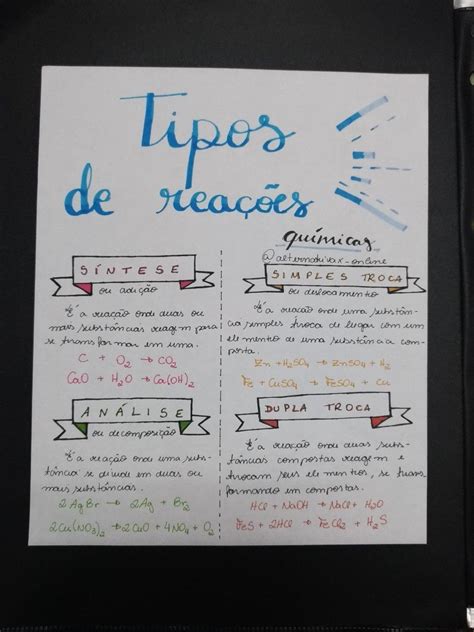 Tipos
de reações
químicas
@alternativax_online
SÍNTESE
ou adição
É a reação onde duas ou
mais substâncias reagem para
se transformar em uma.
C + O₂ → CO₂
CaO + H₂O → Ca(OH)₂
ANÁLISE
ou decomposição
É a reação onde uma subs-
tância se divide em duas ou
mais substâncias.
2AgBr → 2Ag + Br₂
2Cu(NO₃)₂ → 2CuO + 4NO₂ + O₂
SIMPLES TROCA
ou deslocamento
É a reação onde uma substân-
cia simples troca de lugar com um
elemento de uma substância com-
posta.
Zn + H₂SO₄ → ZnSO₄ + H₂
Fe + CuSO₄ → FeSO₄ + Cu
DUPLA TROCA
É a reação onde duas subs-
tâncias compostas reagem e
trocam seus elementos, se trans-
formando em compostas.
HCl + NaOH → NaCl + H₂O
FeS + 2HCl → FeCl₂ + H₂S